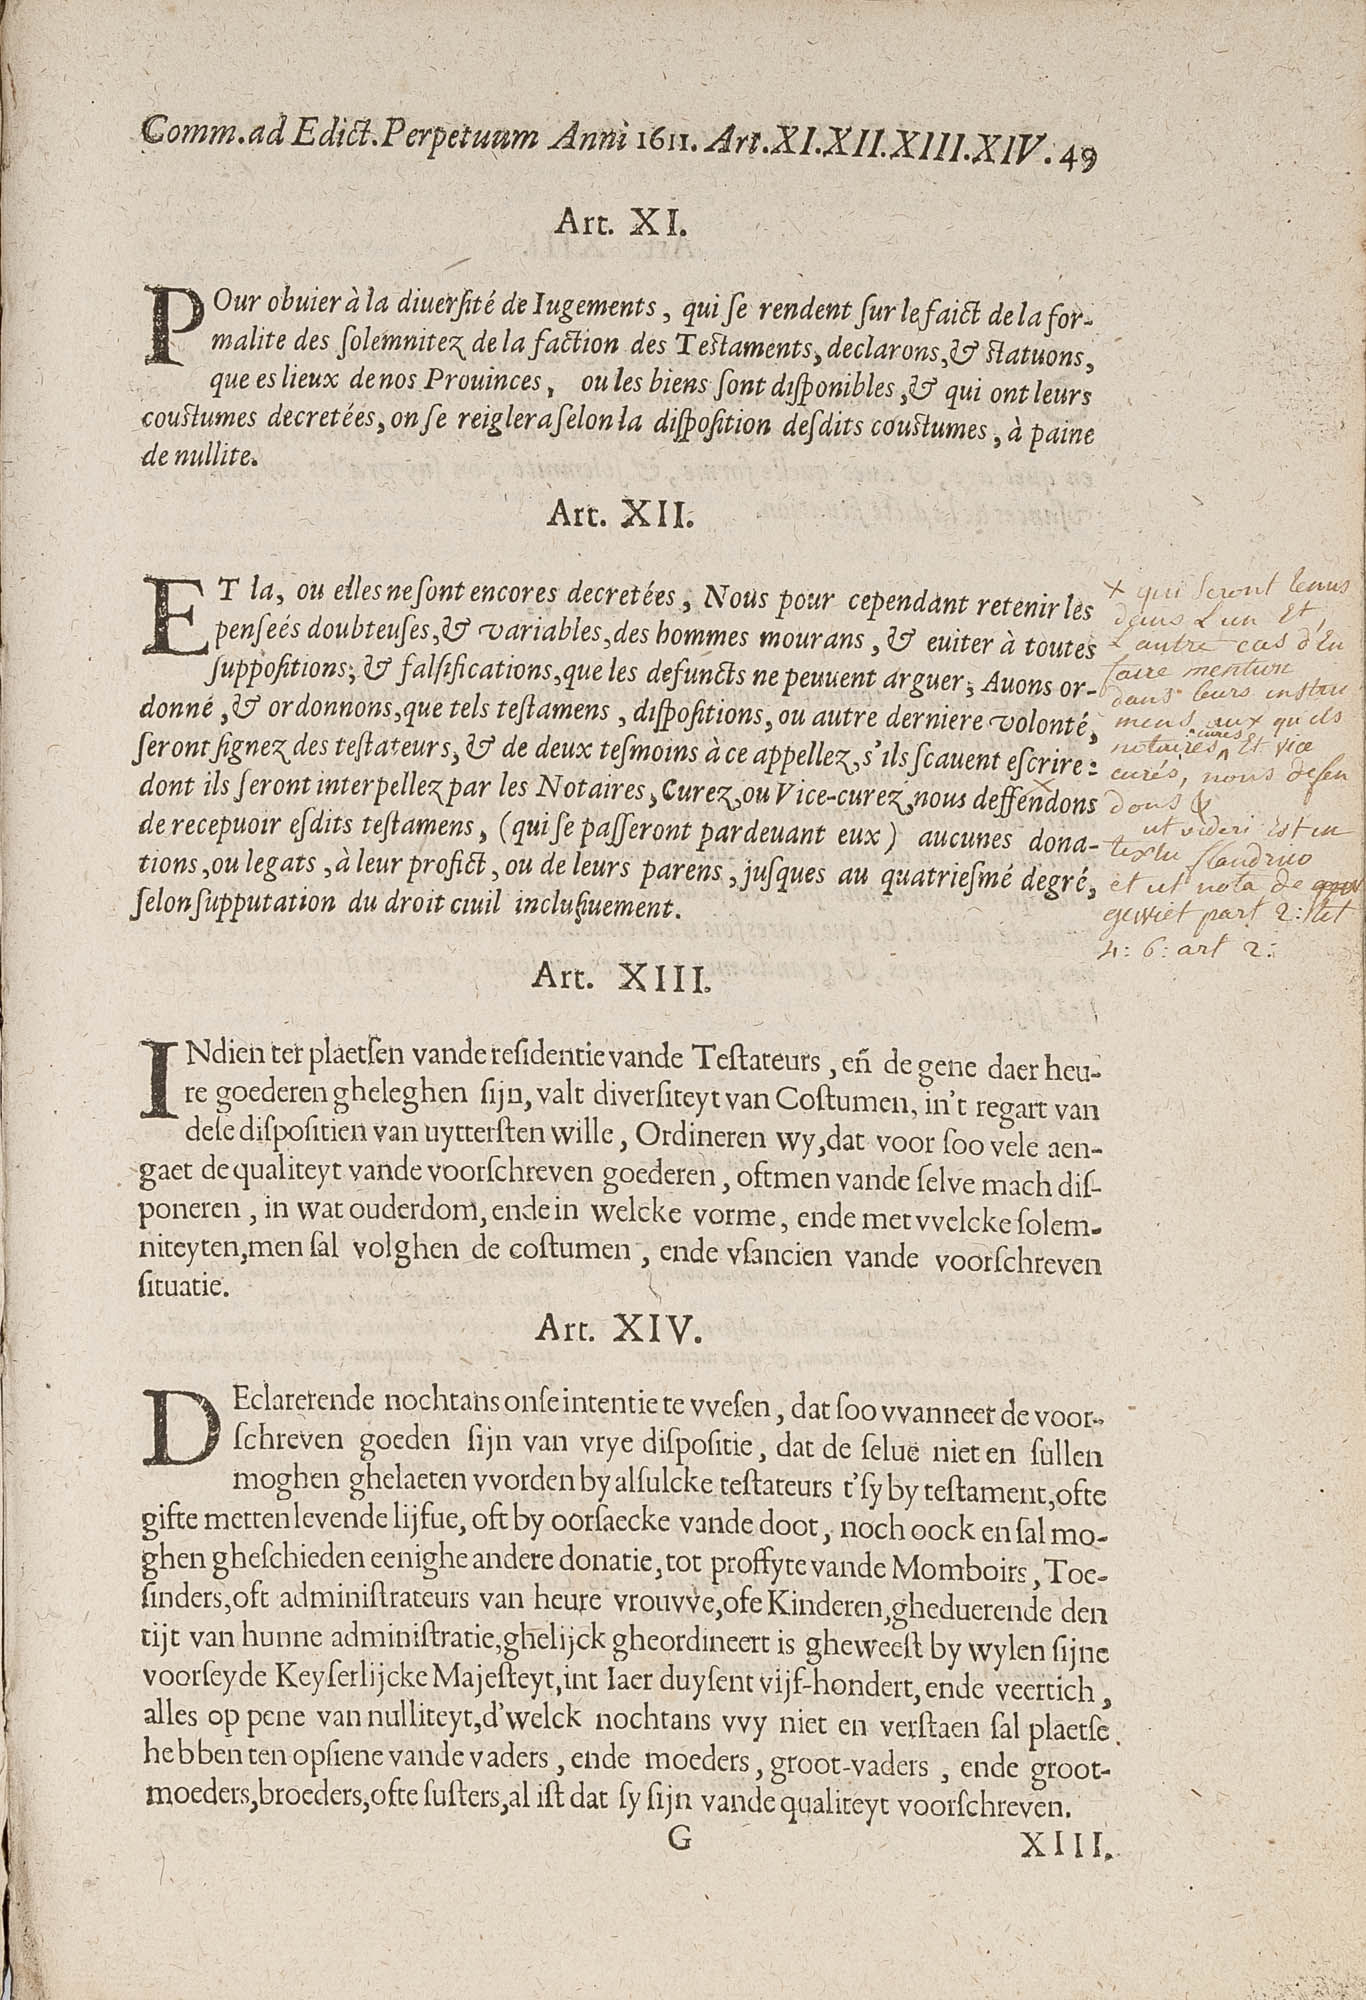 Comm. ad Edict. Perpetuum Anni 1611. Art. XI. XII. XIII. XIV. 49
Art. XI.
POur obuier à la diuersité de Iugements, qui se rendent sur le faict de la for-
malite des solemnitez de la faction des Testaments, declarons, & statuons,
que es lieux de nos Prouinces, ou les biens sont disponibles, & qui ont leurs
coustumes decretées, on se reiglera selon la disposition desdits coustumes, à paine
de nullite.
Art. XII.
ET la, ou elles ne sont encores decretées, Nous pour cependant retenir les
penseés doubteuses, & variables, des hommes mourans, & euiter à toutes
suppositions, & falsifications, que les defuncts ne peuuent arguer, Auons or-
donné, & ordonnons, que tels testamens, dispositions, ou autre derniere volonté,
seront signez des testateurs, & de deux tesmoins à ce appellez, s'ils scauent escrire:
dont ils seront interpellez par les Notaires, Curez, ou Vice-curez, nous deffendons
de recepuoir esdits testamens, (qui se passeront pardeuant eux) aucunes dona-
tions, ou legats, à leur profict, ou de leurs parens, jusques au quatriesmé degré,
selon supputation du droit ciuil inclusiuement.
+ qui seront tenus
dans L'un Et
L'autre cas d'En
faire mention
dans leurs instru
mens aux qu'els
notaires curés Et vice
curés, nous defen
dons &
ut videri Est in
textu flandrico
et ut nota de
gewiet part 2: tit
4: 6: art 2:
Art. XIII.
INdien ter plaetsen vande residentie vande Testateurs, eñ de gene daer heu-
re goederen gheleghen sijn, valt diversiteyt van Costumen, in't regart van
dese dispositien van uyttersten wille, Ordineren wy, dat voor soo vele aen-
gaet de qualiteyt vande voorschreven goederen, oftmen vande selve mach dis-
poneren, in wat ouderdom, ende in welcke vorme, ende met vvelcke solem-
niteyten, men sal volghen de costumen, ende vsancien vande voorschreven
situatie.
Art. XIV.
DEclarerende nochtans onse intentie te vvesen, dat soo vvanneer de voor-
schreven goeden sijn van vrye dispositie, dat de selue niet en sullen
moghen ghelaeten vvorden by alsulcke testateurs t'sy by testament, ofte
gifte metten levende lijfue, oft by oorsaecke vande doot, noch oock en sal mo-
ghen gheschieden eenighe andere donatie, tot proffyte vande Momboirs, Toe-
sinders, oft administrateurs van heure vrouvve, ofe Kinderen, gheduerende den
tijt van hunne administratie, ghelijck gheordineert is gheweest by wylen sijne
voorseyde Keyserlijcke Majesteyt, int Iaer duysent vijf-hondert, ende veertich,
alles op pene van nulliteyt, d'welck nochtans vvy niet en verstaen sal plaetse
hebben ten opsiene vande vaders, ende moeders, groot-vaders, ende groot-
moeders, broeders, ofte susters, al ist dat sy sijn vande qualiteyt voorschreven.
G
XIII.